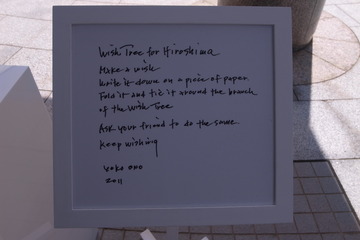 Wish Tree for Hiroshima
Make a wish
Write it down on a piece of paper
Fold it and tie it around the branch
of the Wish Tree
Ask your friend to do the same
Keep wishing
yoko ono
2011